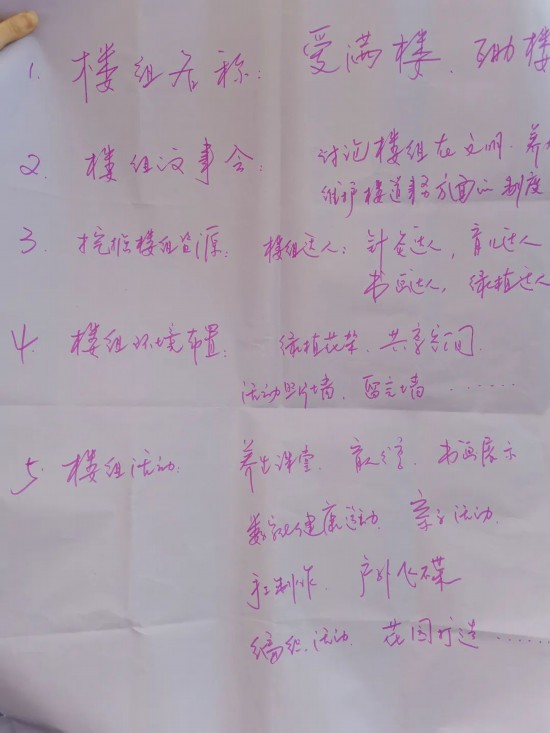 1. 楼组名称: 爱满楼、互助楼
2. 楼组议事会: 讨论楼组在文明、养
维护楼道等方面的制度
3. 挖掘楼组资源: 楼组达人: 针灸达人, 育儿达人
书画达人, 绿植达人
4. 楼组环境布置: 绿植花架、共享空间
活动照片墙、留言墙······
5. 楼组活动: 养生课堂、育儿 书画展示
数字化健康运动、亲子活动、
手工制作、户外飞碟
编织活动、花园打造······